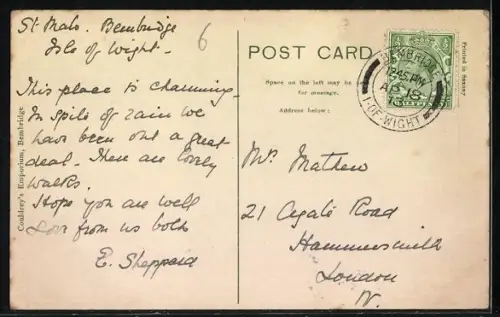 St Malo. Bembridge
Isle of Wight.
6
This place is charming
In spite of rain we
have been out a great
deal. There are lovely
walks.
Hope you are well
Love from us both
E. Sheppard
Couldrey's Emporium, Bembridge
POST CARD
Space on the left may be
for message.
Address below:
Printed in Saxony
BEMBRIDGE
12.45 PM
AP 15
I-OF-WIGHT
Mrs Mathew
21 Agate Road
Hammersmith
London
W.